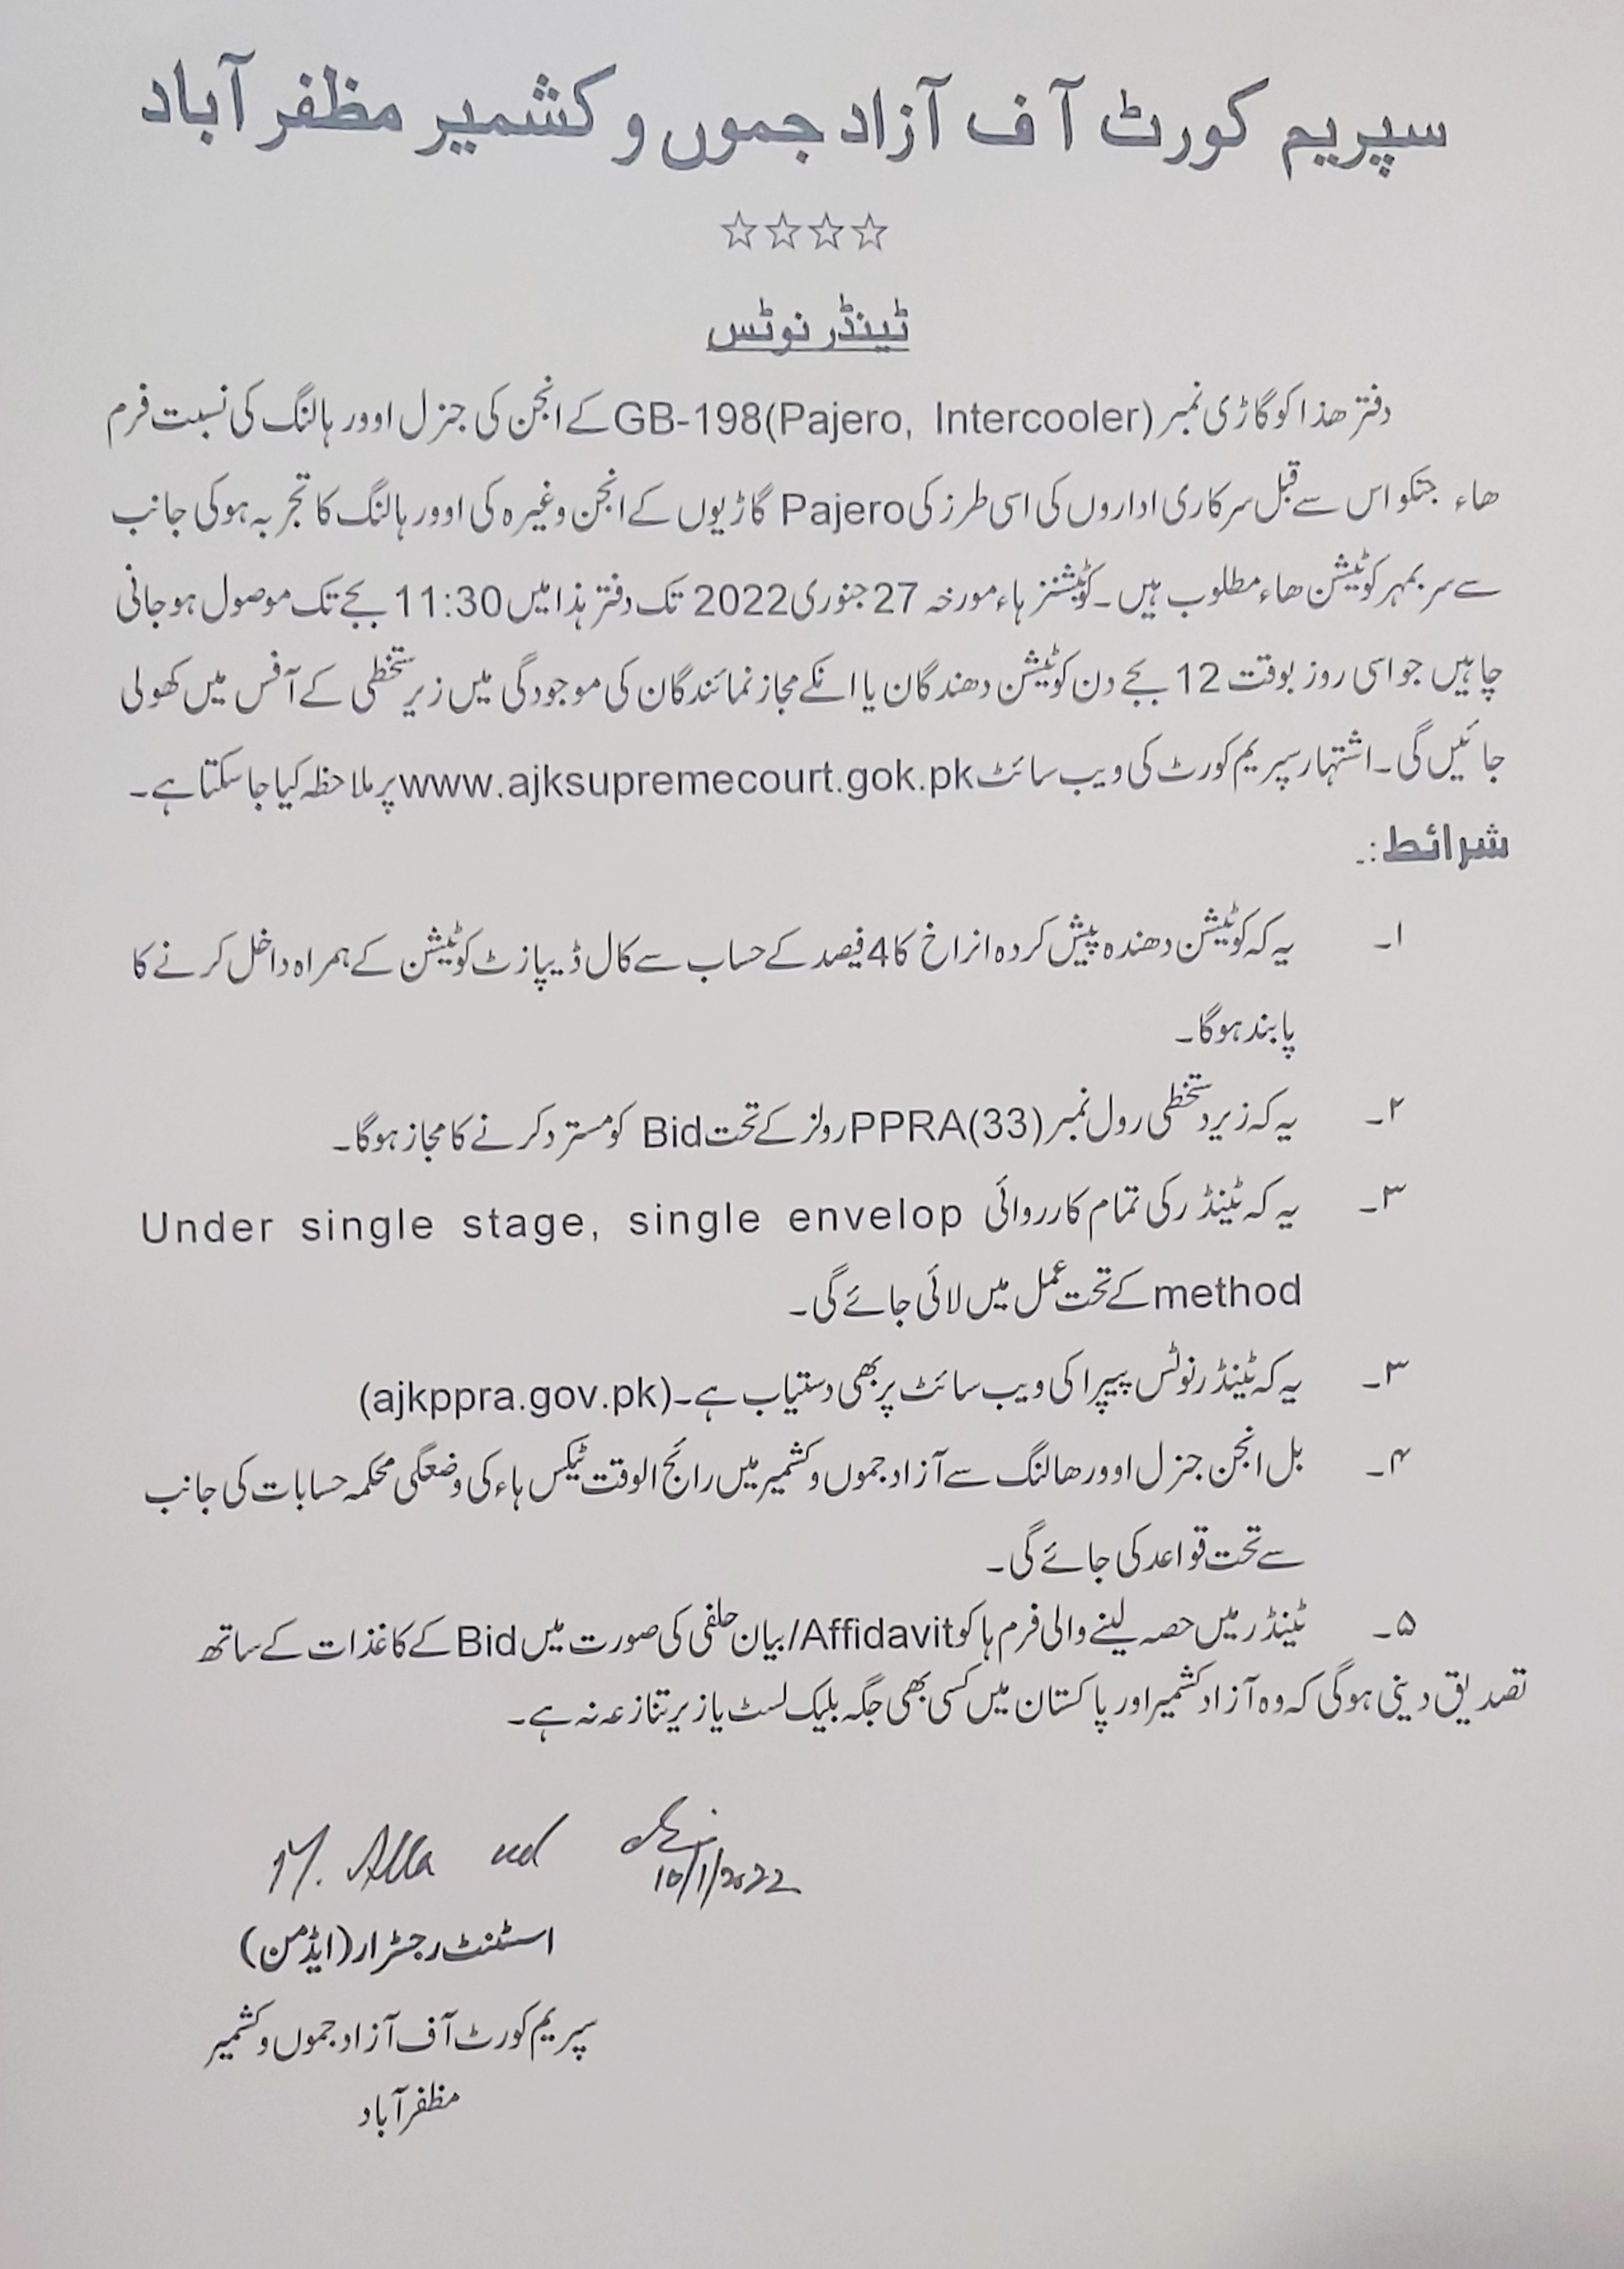 سپریم کورٹ آف آزاد جموں و کشمیر مظفر آباد
☆☆☆☆
ٹینڈر نوٹس
دفتر ھذا کو گاڑی نمبر GB-198(Pajero, Intercooler) کے انجن کی جنرل اوور ہالنگ کی نسبت فرم
ھاء جنکو اس سے قبل سرکاری اداروں کی اسی طرز کی Pajero گاڑیوں کے انجن وغیرہ کی اوور ہالنگ کا تجربہ ہو کی جانب
سے سر بمہر کوٹیشن ھاء مطلوب ہیں۔ کوٹیشنز ہاء مورخہ 27 جنوری 2022 تک دفتر ہذا میں 11:30 بجے تک موصول ہو جانی
چاہیں جو اسی روز بوقت 12 بجے دن کوٹیشن دھندگان یا انکے مجاز نمائندگان کی موجودگی میں زیر ستخطی کے آفس میں کھولی
جائیں گی۔ اشتہار سپریم کورٹ کی ویب سائٹ www.ajksupremecourt.gok.pk پر ملاحظہ کیا جا سکتا ہے۔
شرائط:۔
۱۔ یہ کہ کوٹیشن دھندہ پیش کردہ انراخ کا 4 فیصد کے حساب سے کال ڈیپازٹ کوٹیشن کے ہمراہ داخل کرنے کا
پابند ہوگا۔
۲۔ یہ کہ زیر دستخطی رول نمبر PPRA(33) رولز کے تحت Bid کو مسترد کرنے کا مجاز ہوگا۔
۳۔ یہ کہ ٹینڈر کی تمام کارروائی Under single stage, single envelop
method کے تحت عمل میں لائی جائے گی۔
۳۔ یہ کہ ٹینڈر نوٹس پیپرا کی ویب سائٹ پر بھی دستیاب ہے۔ (ajkppra.gov.pk)
۴۔ بل انجن جنرل اوور ھالنگ سے آزاد جموں و کشمیر میں رائج الوقت ٹیکس ہاء کی وضعگی محکمہ حسابات کی جانب
سے تحت قواعد کی جائے گی۔
۵۔ ٹینڈر میں حصہ لینے والی فرم ہا کو Affidavit/بیان حلفی کی صورت میں Bid کے کاغذات کے ساتھ
تصدیق دینی ہوگی کہ وہ آزاد کشمیر اور پاکستان میں کسی بھی جگہ بلیک لسٹ یا زیر تنازعہ نہ ہے۔
10/1/2022
اسسٹنٹ رجسٹرار (ایڈمن)
سپریم کورٹ آف آزاد جموں و کشمیر
مظفر آباد